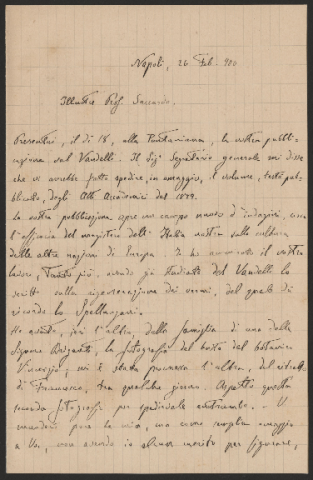 Napoli, 26 Feb. 900
Illustre Prof. Saccardo,
Presentai, il dì 18, alla Pontaniana, la vostra pubbli-
cazione sul Vandelli. Il Sig. Segretario generale mi disse
che vi avrebbe fatto spedire, in omaggio, il volume, testè pub-
blicato, degli Atti Accademici del 1899.
La vostra pubblicazione apre un campo nuovo d'indagini, circa
l'efficacia del magistero dell'Italia nostra sulla cultura
delle altre nazioni di Europa. Io ho il vostro
lavoro, tanto più, avendo già studiato del Vandelli lo
scritto sulla rigenerazione dei vermi, del quale di
ricordo lo Spallanzani.
Ho avuto, ieri l'altro, dalla famiglia di una delle
Signore Briganti, la fotografia del busto del botanico
Vincenzo; mi è stata promessa l'altra, del ritratto
di Francesco, tra qualche giorno. Aspetto questa
seconda fotografia per spedirvele entrambe. - Vi
manderò pure la mia, ma come semplice omaggio
a Voi, non avendo io alcun merito per figurare,